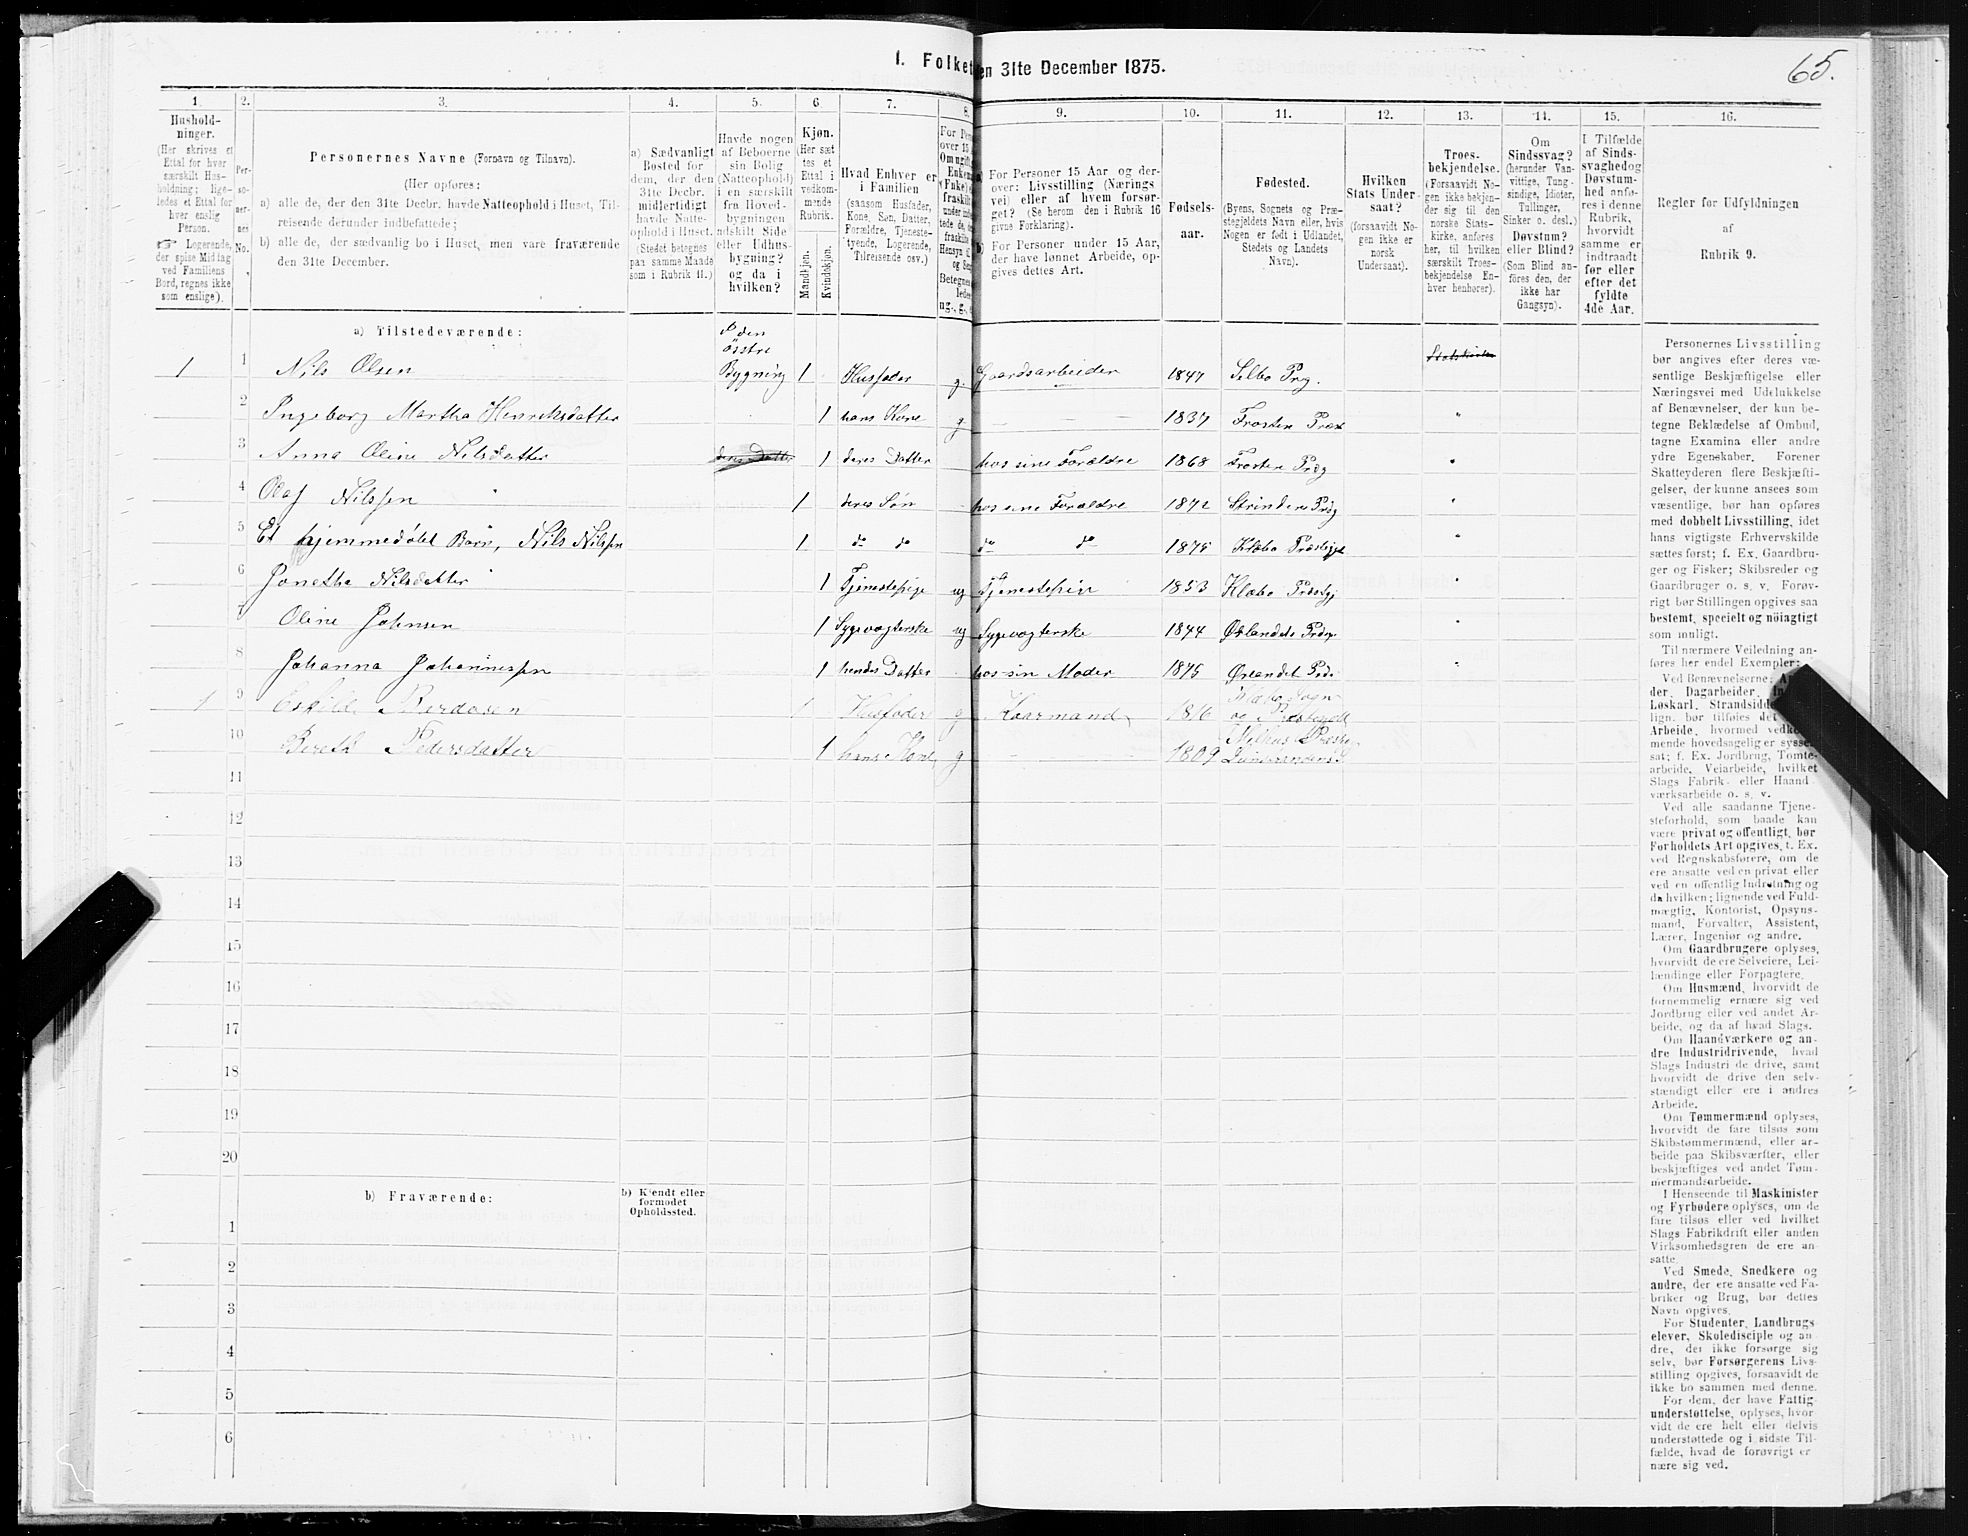 65.
I. Folket
en 31te December 1875.
1. 2. 3. 4. 5. 6. 7. 8. 9. 10. 11. 12. 13. 14. 15. 16.
Hushold-
ninger.
(Her skrives et
Ettal for hver
særskilt Hus-
holdning; lige-
ledes et Ettal for
hver enslig
Person.
☞ Logerende,
der spise Middag
ved Familiens
Bord, regnes ikke
som enslige).
Per-
so-
ner-
nes
No.
Personernes Navne (Fornavn og Tilnavn).
(Her opføres:
a) alle de, der den 31te Decbr. havde Natteophold i Huset, Til-
reisende derunder indbefattede;
b) alle de, der sædvanlig bo i Huset, men vare fraværende
den 31te December.
a) Sædvanligt
Bosted for
dem, der den
31te Decbr.
midlertidigt
havde Natte-
ophold i Huset.
(Stedet betegnes
paa samme Maade
som i Rubrik 11.)
Havde nogen
af Beboerne
sin Bolig
(Natteophold)
i en særskilt
fra Hoved-
bygningen
adskilt Side
eller Udhus-
bygning?
og da i
hvilken?
Kjøn.
(Her sæt
tes et
Ettal i
vedkom-
mende
Rubrik.
Mandkjøn.
Kvindekjøn.
Hvad Enhver er
i Familien
(saasom Husfader,
Kone, Søn, Datter,
Forældre, Tjeneste-
tyende, Logerende,
Tilreisende osv.)
For Pers
over 15
Om ugift,
Enkem
(Enke) e
fraskilt
under ind
tede de, c
fraskilte
Hensyn ti
og Sen
Betegnes
lede
ug., g.,
a) For Personer 15 Aar og der-
over: Livsstilling (Nærings
vei) eller af hvem forsør-
get? (Se herom den i Rubrik 16
givne Forklaring).
b) For Personer under 15 Aar,
der have lønnet Arbeide, op-
gives dettes Art.
Fødsels-
aar.
Fødested.
(Byens, Sognets og Præ-
stegjeldets Navn eller, hvis
Nogen er født i Udlandet,
Stedets og Landets
Navn).
Hvilken
Stats Under-
saat?
(forsaavidt No-
gen ikke er
norsk
Undersaat).
Troes-
bekjendelse.
(Forsaavidt No-
gen ikke bekjen-
der sig til den
norske Stats-
kirke, anføres
her, til hvilken
særskilt Troes-
bekjendelse En-
hver henhører).
Om
Sindssvag?
(herunder Van-
vittige, Tung-
sindige, Idioter,
Tullinger,
Sinker o. desl.)
Døvstum?
eller Blind?
(Som Blind an-
føres den, der
ikke har
Gangsyn).
I Tilfælde
af Sinds-
svaghed og
Døvstum-
hed anfø-
res i denne
Rubrik,
hvorvidt
samme er
indtraadt
før eller
efter det
fyldte
4de Aar.
Regler for Udfyldningen
af
Rubrik 9.
a) Tilstedeværende:
1 1 Nils Olsen den østre Bygning 1 Husfader g. Gaardsarbeider 1847 Selbo Prg. Statskirken
2 Ingeborg Martha Henriksdatter 1 hans Kone g 1837 Frosten Præst "
3 Anna Oline Nilsdatter deres Datter 1 deres Datter hos sine Forældre 1868 Frosten Prég "
4 Olaf Nilssen 1 deres Søn hos sine Forældre 1872 Strindens Prég "
5 Et hjemmedøbt Barn, Nils Nilssen 1 do do do do 1875 Klæbo Præstegj "
6 Jonetha Nilsdatter 1 Tjenestepige ug Tjenestepige 1853 Klæbo Præstgj "
7 Oline Johnsen 1 Sygevogterske ug Sygevogterske 1844 Ørlandets "
8 Johanna Johannessen 1 hendes Datter hos sin Moder 1875 Ørlandet "
1 9 Eskild Bardosen 1 Husfader g Kaarmand 1816 Klæbo Sogn og Præstegjeld
10 Bereth Pedersdatter 1 hans Kone g 1809 Melhus Præste
11
12
13
14
15
16
17
18
19
20
b) Fraværende:
b) Kjendt eller
formodet
Opholdssted.
1
2
3
4
5
6
Personernes Livsstilling
bør angives efter deres væ-
sentlige Beskjæftigelse eller
Næringsvei med Udelukkelse
af Benævnelser, der kun be-
tegne Beklædelse af Ombud,
tagne Examina eller andre
ydre Egenskaber. Forener
Skatteyderen flere Beskjæfti-
gelser, der kunne ansees som
væsentlige, bør han opføres
med dobbelt Livsstilling, idet
hans vigtigste Erhvervskilde
sættes først; f. Ex. Gaardbru-
ger og Fisker; Skibsreder og
Gaardbruger o. s. v. Forøv-
rigt bør Stillingen opgives saa
bestemt, specielt og nöiagtigt
som muligt.
Til nærmere Veiledning an-
føres her endel Exempler:
Ved Benævnelserne:
der, Dagarbeider,
Løskarl, Strandsidd
lign. bør tilføies det
Arbeide, hvormed vedkom-
mende hovedsagelig er syssel-
sat; f. Ex. Jordbrug, Tomte-
arbeide, Veiarbeide, hvilket
Slags Fabrik- eller Haand-
værksarbeide o. s. v.
Ved alle saadanne Tjene-
steforhold, som baade kan
være privat og offentligt, bør
Forholdets Art opgives, t. Ex.
ved Regnskabsførere, om de
ere ansatte ved en privat eller
ved en offentlig Indretning og
da hvilken; lignende ved Fuld-
mægtig, Kontorist, Opsyns-
mand, Forvalter, Assistent,
Lærer, Ingeniør og andre.
Om Gaardbrugere oplyses,
hvorvidt de ere Selveiere, Lei-
lændinge eller Forpagtere.
Om Husmænd, hvorvidt de
fornemmelig ernære sig ved
Jordbrug eller ved andet Ar-
beide, og da af hvad Slags.
Om Haandværkere og an-
dre Industridrivende, hvad
Slags Industri de drive, samt
hvorvidt de drive den selv-
stændigt eller ere i andres
Arbeide.
Om Tømmermænd oplyses,
hvorvidt de fare tilsøs som
Skibstømmermænd, eller ar-
beide paa Skibsværfter, eller
beskjæftiges ved andet Tøm-
mermandsarbeide.
I Henseende til Maskinister
og Fyrbødere oplyses, om de
fare tilsøs eller ved hvilket
Slags Fabrikdrift eller anden
Virksomhedsgren de ere an-
satte.
Ved Smede, Snedkere og
andre, der ere ansatte ved Fa-
briker og Brug, bør dettes
Navn opgives.
For Studenter, Landbrugs-
elever, Skoledisciple og an-
dre, der ikke forsørge sig
selv, bør Forsørgerens Livs-
stilling opgives, forsaavidt de
ikke bo sammen med denne.
For dem, der have Fattig-
understøttelse, oplyses, hvor
vidt de ere helt eller delvis
understøttede og i sidste Til-
fælde, hvad de forøvrigt er
nære sig ved.